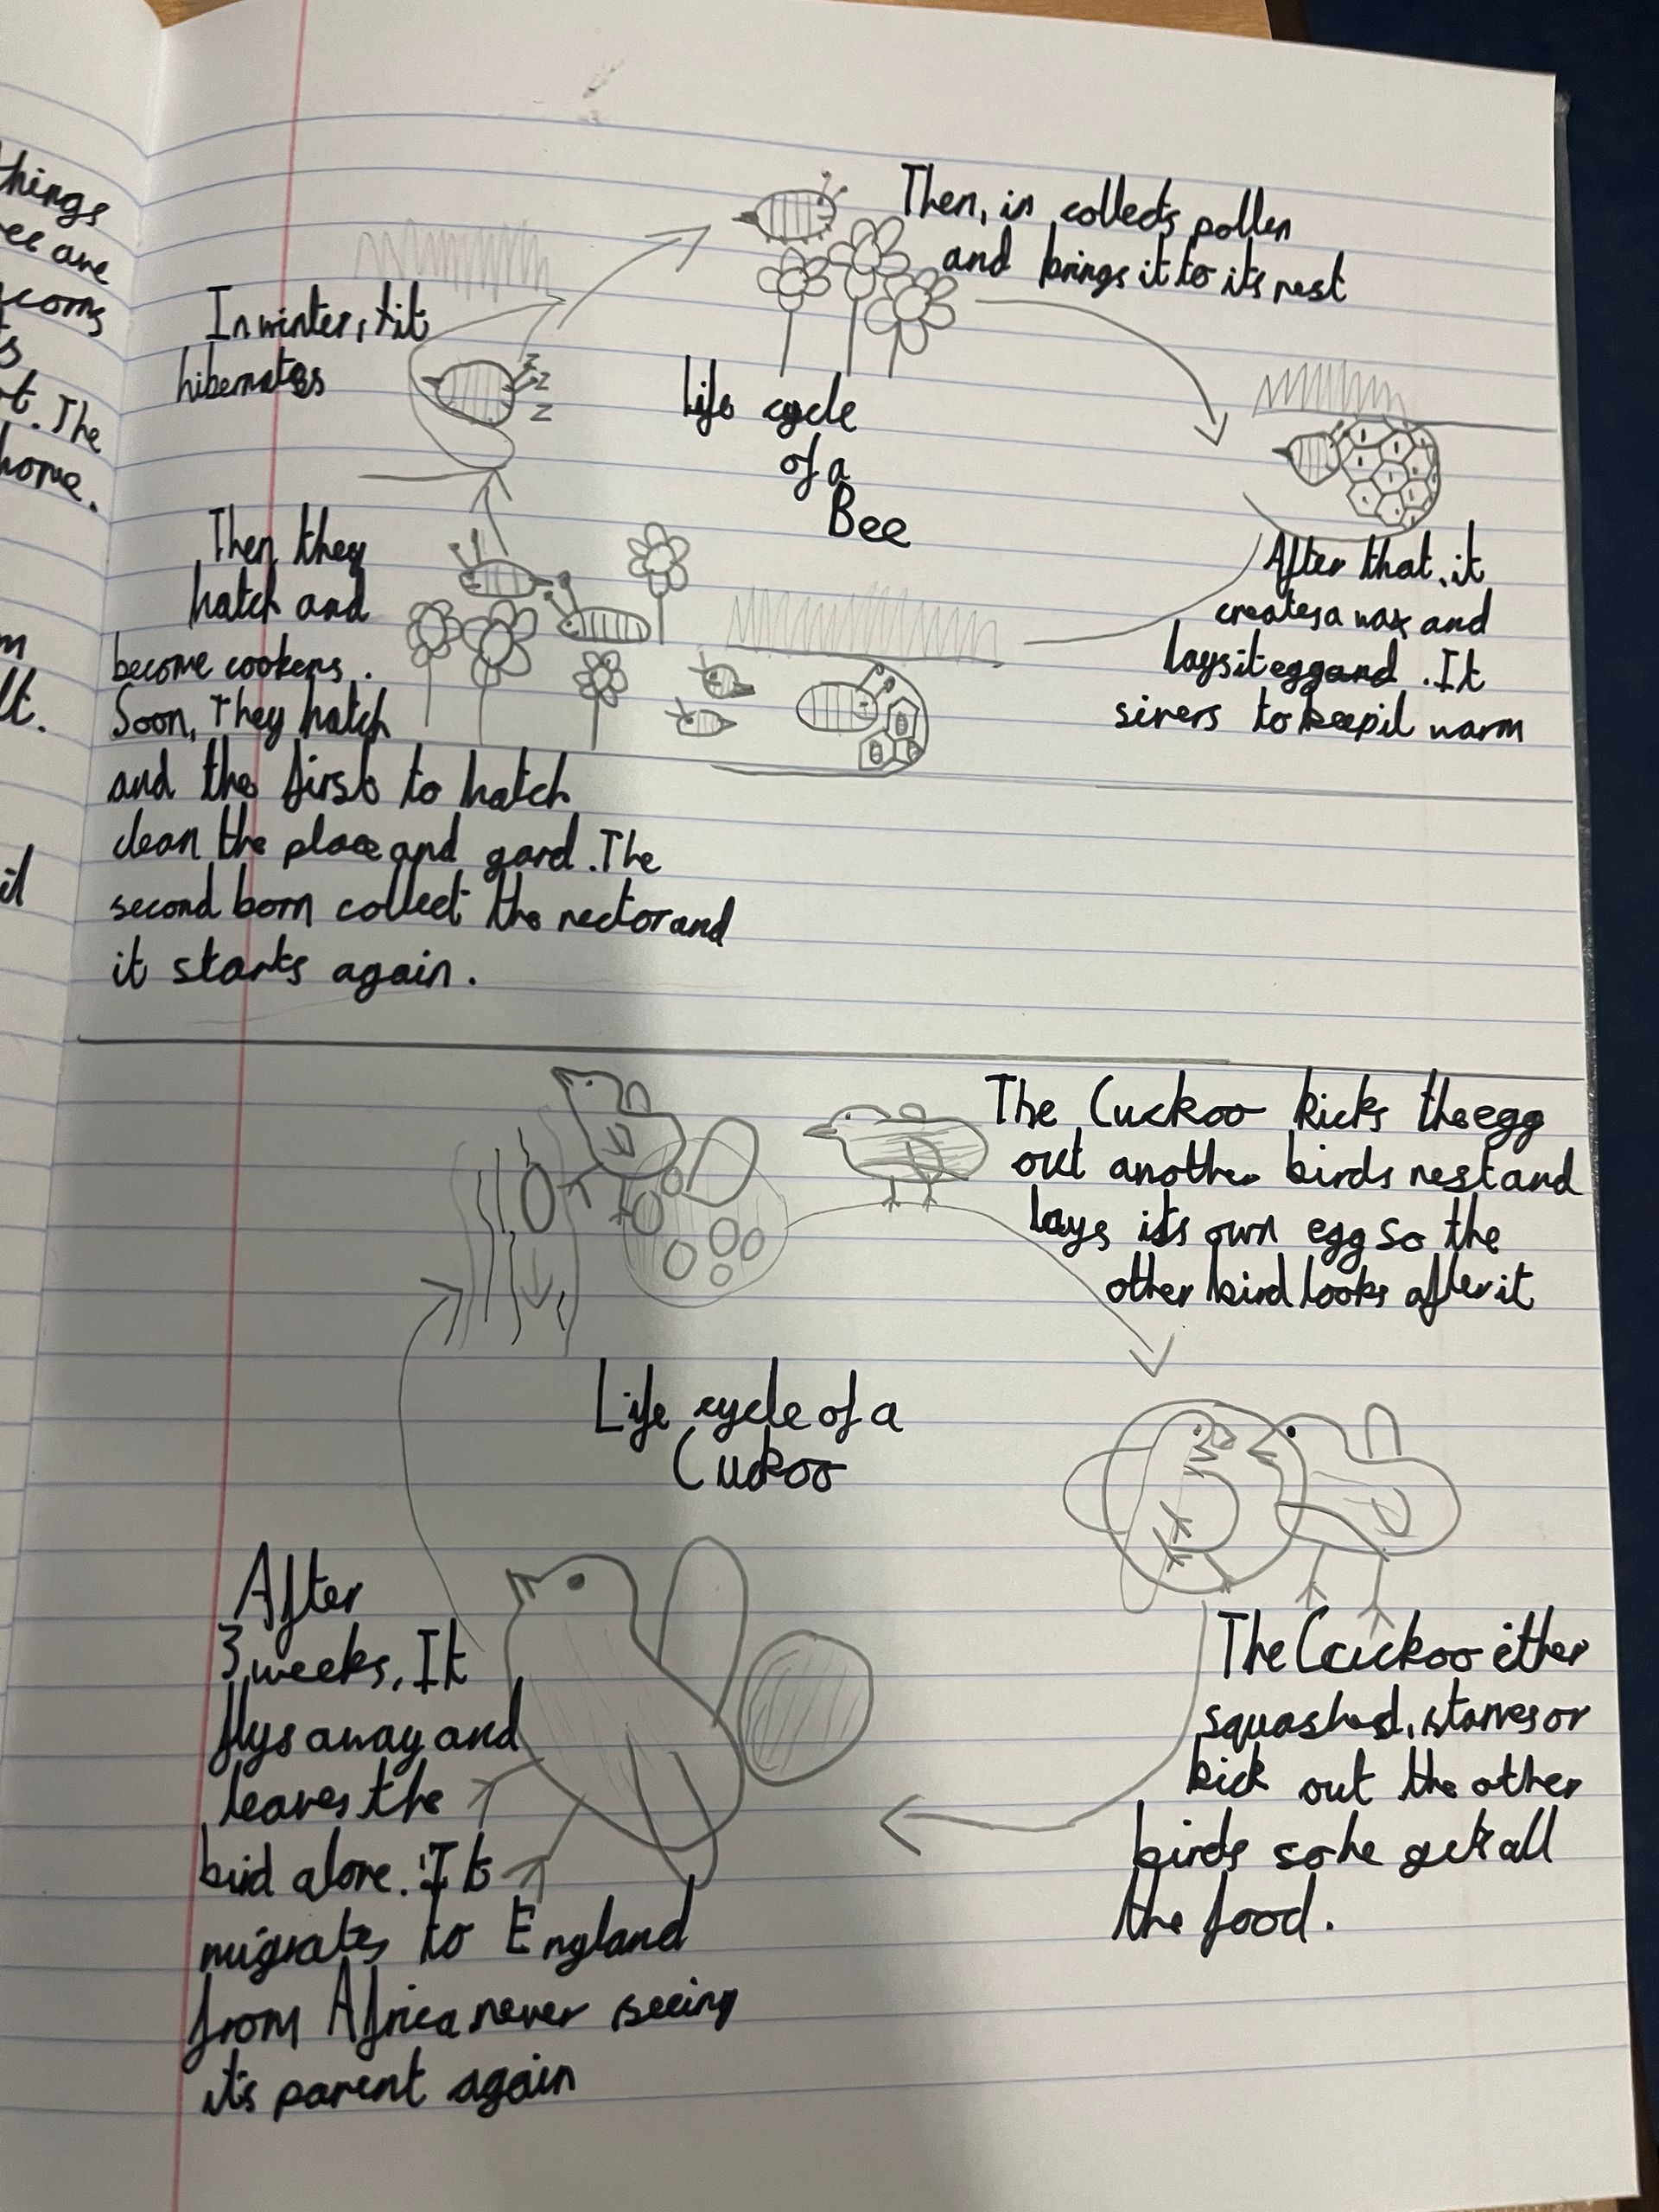 things
ee are
corns
s
t. The
home.
m
lt.
il
In winter, tit
hibernates
Then, in collects pollen
and brings it to its nest
z
z
z
life cycle
of a
Bee
After that, it
creates a wax and
lays it egg and . It
sivers to keep it warm
Then they
hatch and
become cookens .
Soon, They hatch
and the first to hatch
clean the place and gard . The
second born collect the nector and
it starts again .
The Cuckoo kicks the egg
out another birds nest and
lays its own egg so the
other bird looks after it
Life cycle of a
Cuckoo
The Cuckoo ether
squashed, starves or
kick out the other
birds so he gets all
the food .
After
3 weeks, It
flys away and
leaves the
bird alone. It
migrates to England
from Africa never seeing
it's parent again